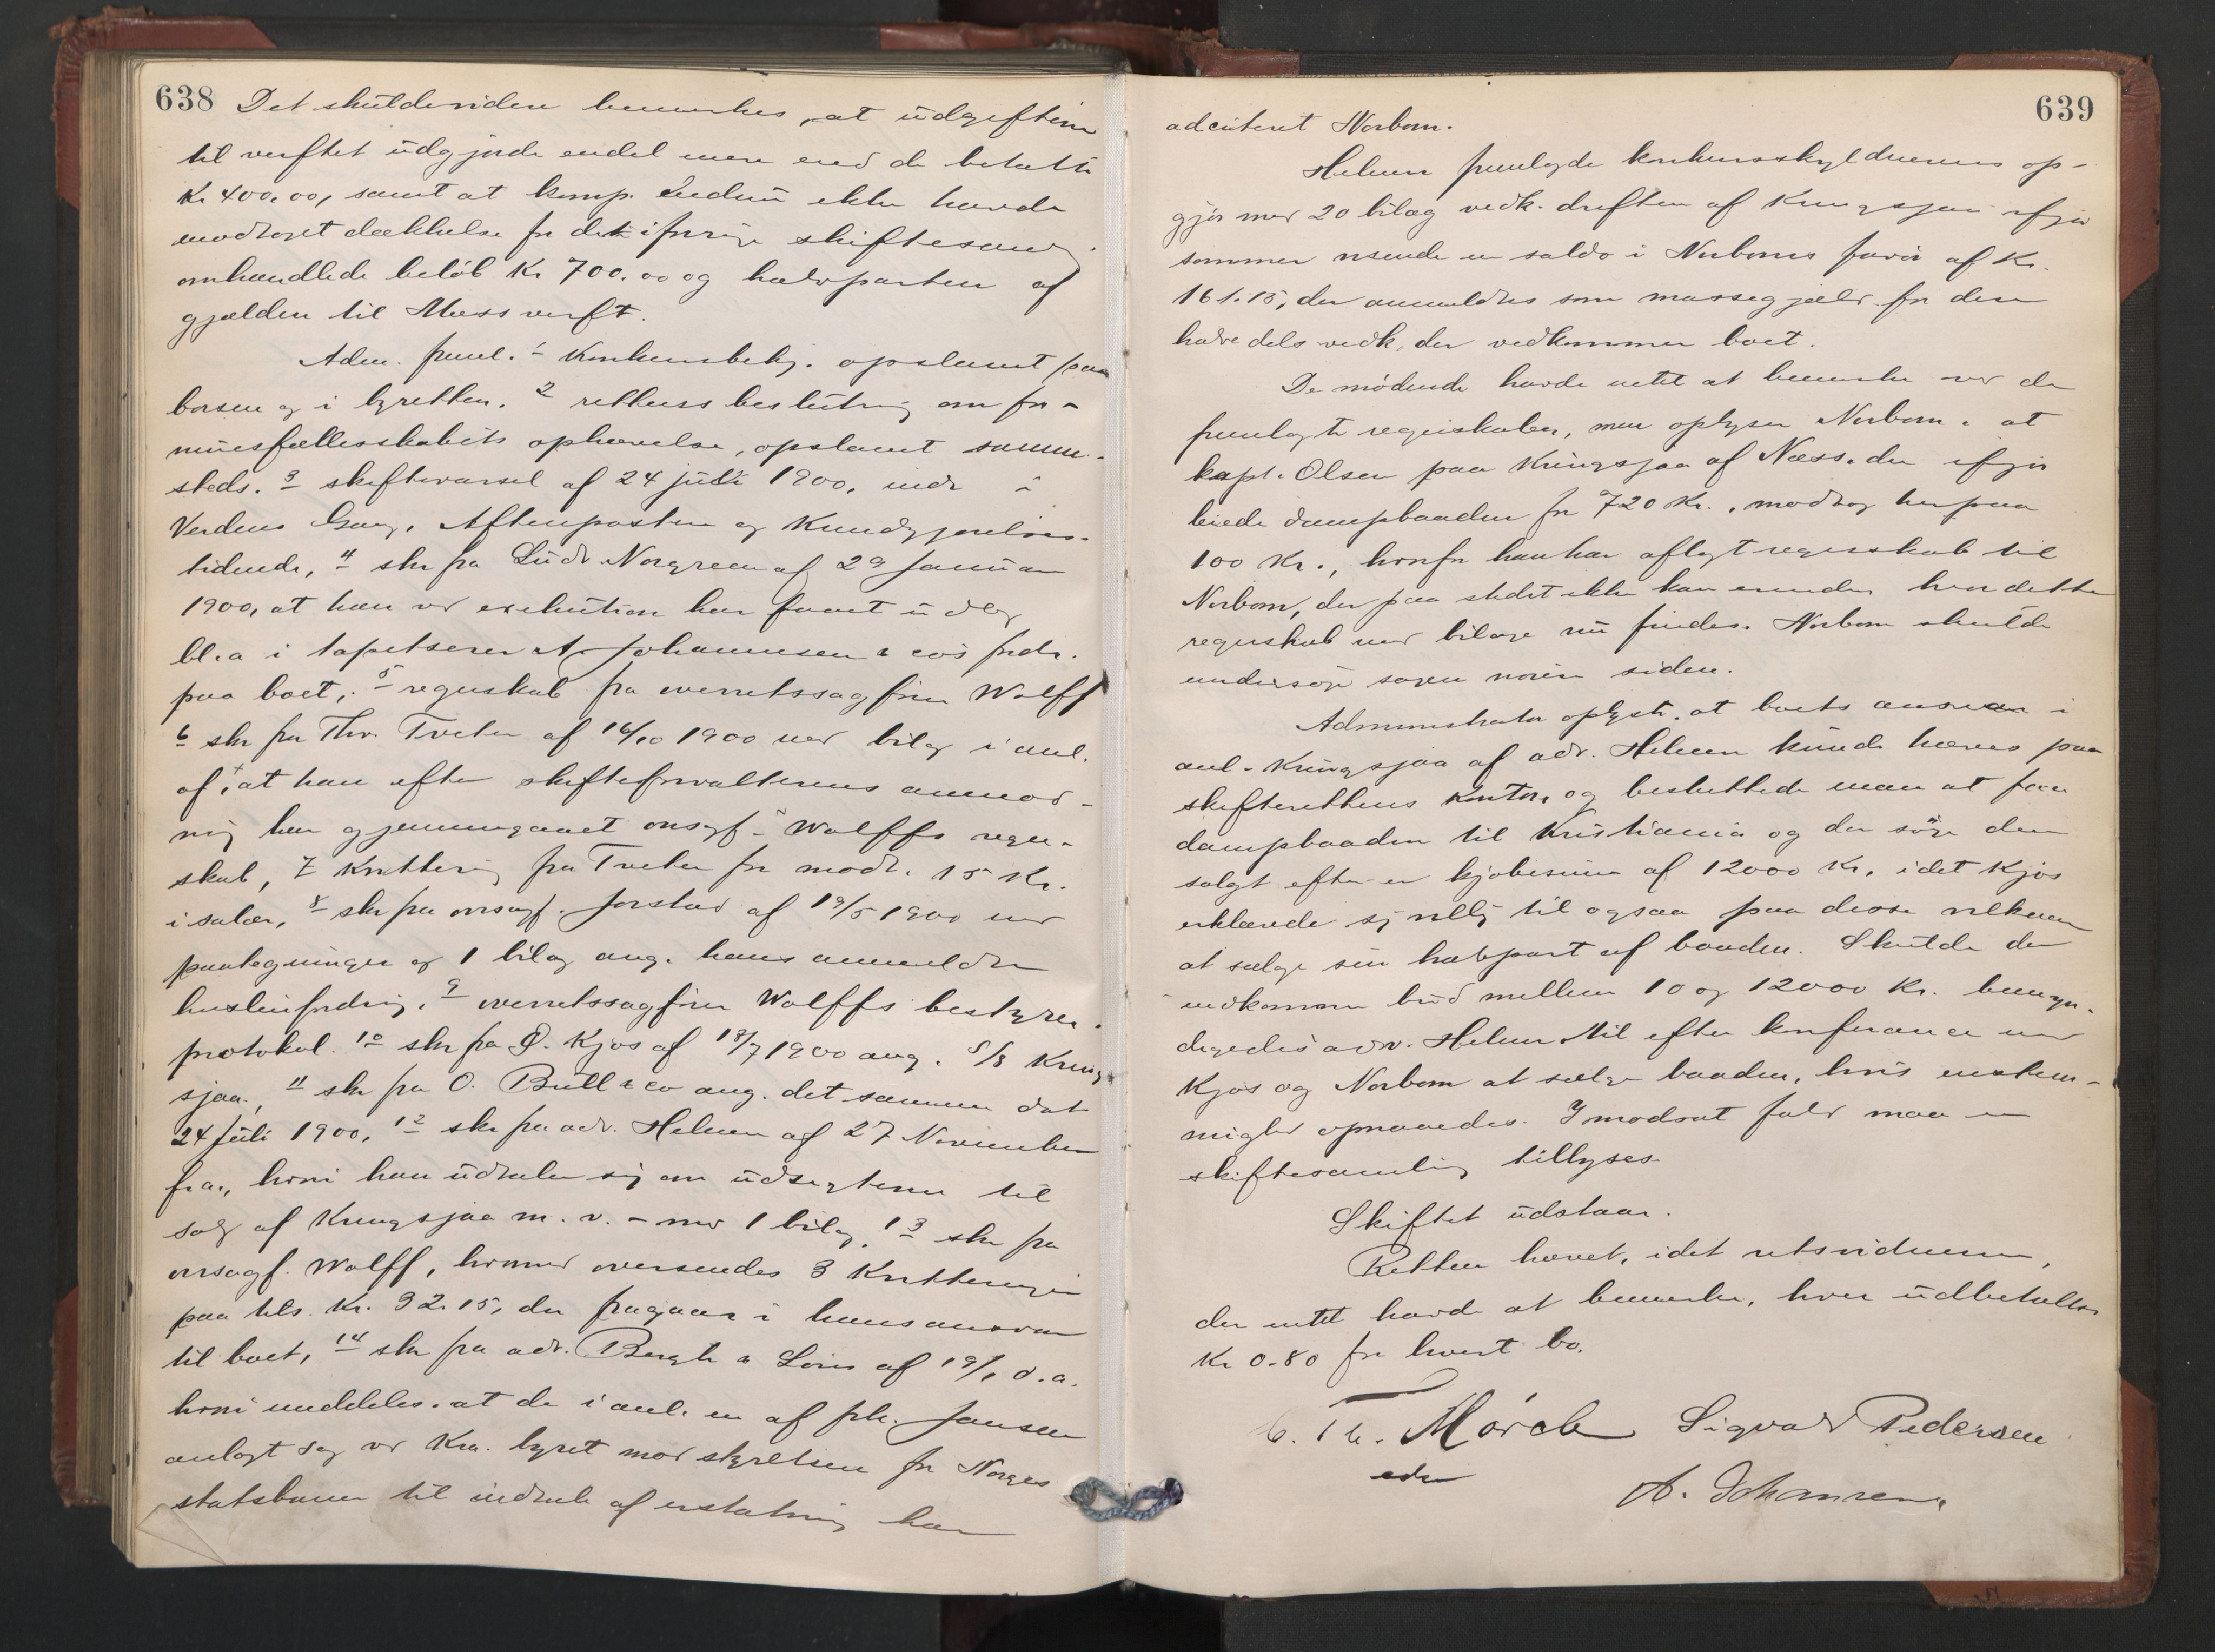 638 Det skulde videre bemerkes, at udgifterne
til verftet udgjorde endel mere end de betalte
Kr 400.00, samt at komp. endnu ikke havde
modtaget dækkelse for det i forrige skiftesaml.
omhandlede beløb Kr 700.00 og halvparten af
gjælden til Moss verft.
Adm. freml. 1 Konkursbekj. opslaaet paa
børsen og i byretten. 2 rettens beslutning om for-
muesfællesskabets ophævelse, opslaaet samme-
steds. 3 skiftevarsel af 24 juli 1900, indr i
Verdens Gang, Aftenposten og Kundgjørelses-
tidende, 4 skr fra Ludv Norgreen af 29 Januar
1900, at han ved exekution har faaet udlæg
bl.a i tapetserer A. Johannesen & cos fordr.
paa boet, 5 regnskab fra overretssagfører Wolff
6 skr fra Thv. Tveter af 16/10 1900 med bilag i anl.
af, at han efter skifteforvalterens anmod-
ning har gjennemgaaet orsagf. Wolffs regn-
skab, 7 Kvittering fra Tveter for modt. 15 Kr.
i salær, 8 skr fra orsagf. Jorstad af 19/5 1900 med
paategninger og 1 bilag ang. hans anmeldte
husleiefordring, 9 overretssagfører Wolffs bestyrer-
protokol. 10 skr fra P. Kjøs af 18/7 1900 ang. S/S Kring
sjaa, 11 skr fra O. Bull & co ang. det samme dat
24 Juli 1900, 12 skr fra adv. Helmen af 27 November
f.a., hvori han udtaler sig om udsigterne til
salg af Kringsjaa m.v. - med 1 bilag. 13 skr fra
orsagf. Wolff, hvormed oversendes 3 Kvitteringer
paa tils. Kr. 32.15, der fragaar i hans ansvar
til boet, 14 skr fra adv. Bergh & Lous af 19/1 d.a.
hvori meddeles, at de i anl. en af frk. Jansen
anlagt sag ved Kra. byret mod styrelsen for Norges
statsbaner til indtale af erstatning har
639
adciteret Norbom.
Helmen fremlagde konkursskyldnerens op-
gjør med 20 bilag vedk. driften af Kringsjaa ifjor
sommer visende en saldo i Norboms favør af Kr.
161.15, der anmeldtes som massegjæld for den
halve dels vedk. der vedkommer boet.
De mødende havde intet at bemerke ved de
fremlagte regnskaber, men oplyser Norbom, at
kapt. Olsen paa Kringsjaa af Næss, der ifjor
leiede dampbaaden for 720 Kr., modtog herpaa
100 Kr., hvorfor han har aflagt regnskab til
Norbom, der paa stedet ikke kan erindre hvor dette
regnskab med bilage nu findes. Norbom skulde
undersøge sagen nøiere siden.
Administrator oplyste, at boets ansvar i
anl. Kringsjaa af adv. Helmen kunde hæves paa
skifterettens kontor, og besluttede man at faa
dampbaaden til Kristiania og der søge den
solgt efter en kjøbesum af 12000 Kr, idet Kjøs
erklærede sig villig til ogsaa paa disse vilkaar
at sælge sin halvpart af baaden. Skulde der
indkomme bud mellem 10 og 12000 Kr. bemyn-
digedes adv. Helmen til efter konferance med
Kjøs og Norbom at sælge baaden, hvis enstem-
mighed opnaaedes. I modsat fald maa en
skiftesamling tillyses.
Skiftet udstaar.
Retten hævet, idet retsvidnerne,
der intet havde at bemerke, hver udbetaltes
Kr 0.80 for hvert bo.
C. Th. Mørch Sigvad Pedersen
edsv
A. Johansen